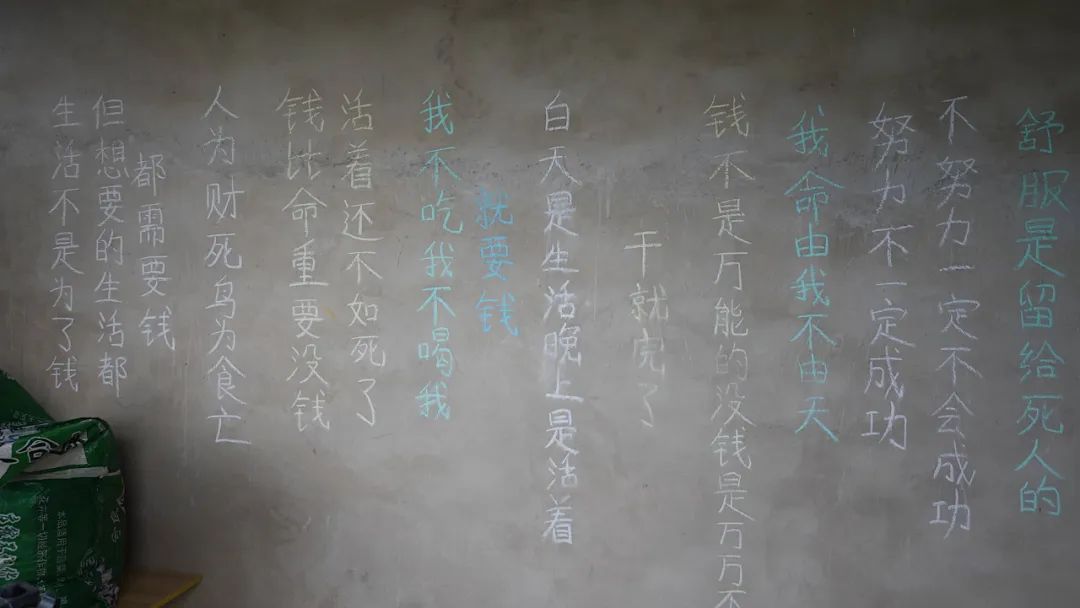 生活不是为了钱
但想要的生活都
都需要钱
人为财死鸟为食亡
钱比命重要没钱
活着还不如死了
我不吃我不喝我
就要钱
白天是生活晚上是活着
干就完了
钱不是万能的没钱是万万不
我命由我不由天
努力不一定成功
不努力一定不会成功
舒服是留给死人的